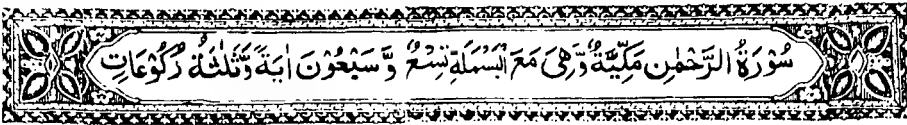 سُوْرَةُ الرَّحْمٰنِ مَكِّيَّةٌ وَّهِىَ مَعَ الْبَسْمَلَةِ تِسْعٌ وَّسَبْعُوْنَ اٰيَةً وَّثَلٰثَةُ رُكُوْعَاتٍ